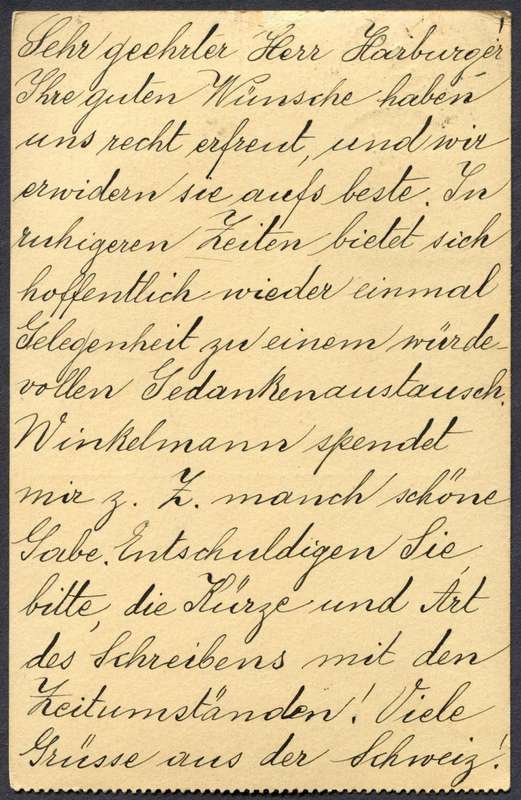 Sehr geehrter Herr Harburger!
Ihre guten Wünsche haben
uns recht erfreut, und wir
erwidern sie aufs beste. In
ruhigeren Zeiten bietet sich
hoffentlich wieder einmal
Gelegenheit zu einem würde-
vollen Gedankenaustausch.
Winkelmann spendet
mir z. Z. manch schöne
Gabe. Entschuldigen Sie,
bitte, die Kürze und Art
des Schreibens mit den
Zeitumständen! Viele
Grüsse aus der Schweiz!